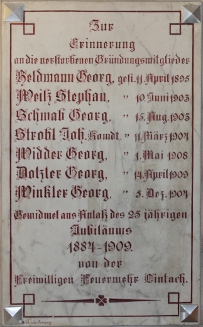 Zur
Erinnerung
an die verstorbenen Gründungsmitglieder
Heldmann Georg, gest. 11. April 1895
Weiß Stephan, " 10. Juni 1903
Schwab Georg, " 15. Aug. 1903
Strobl Joh. Komdt. " 11. März 1904
Widder Georg, " 1. Mai 1908
Dotzler Georg, " 14. April 1909
Winkler Georg, " 5. Dez. 1904
Gewidmet aus Anlaß des 25 jährigen
Jubiläums
1884-1909.
von der
Freiwilligen Feuerwehr Lintach.